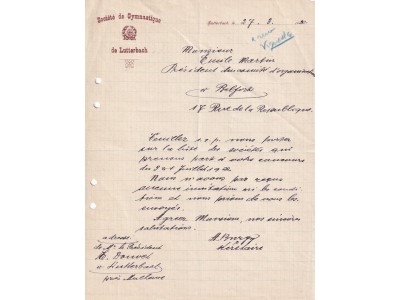 Société de Gymnastique
de Lutterbach
Lutterbach le 27 - 8. 192
Monsieur
Emile Martin
Président du comité d'organisation
à Belfort
17 Rue de la République.
Veuillez s.v.p. nous porter
sur la liste des sociétés qui
prennent part à votre concours
du 3 et 4 Juillet
Nous n'avons pas reçu
aucune invitation ni les condi
tions et vous prions de nous les
envoyés.
Agréez Monsieur, nos sincères
salutations.
Secrétaire
adresse
de Mr le Président
à Lutterbach
près Mulhouse